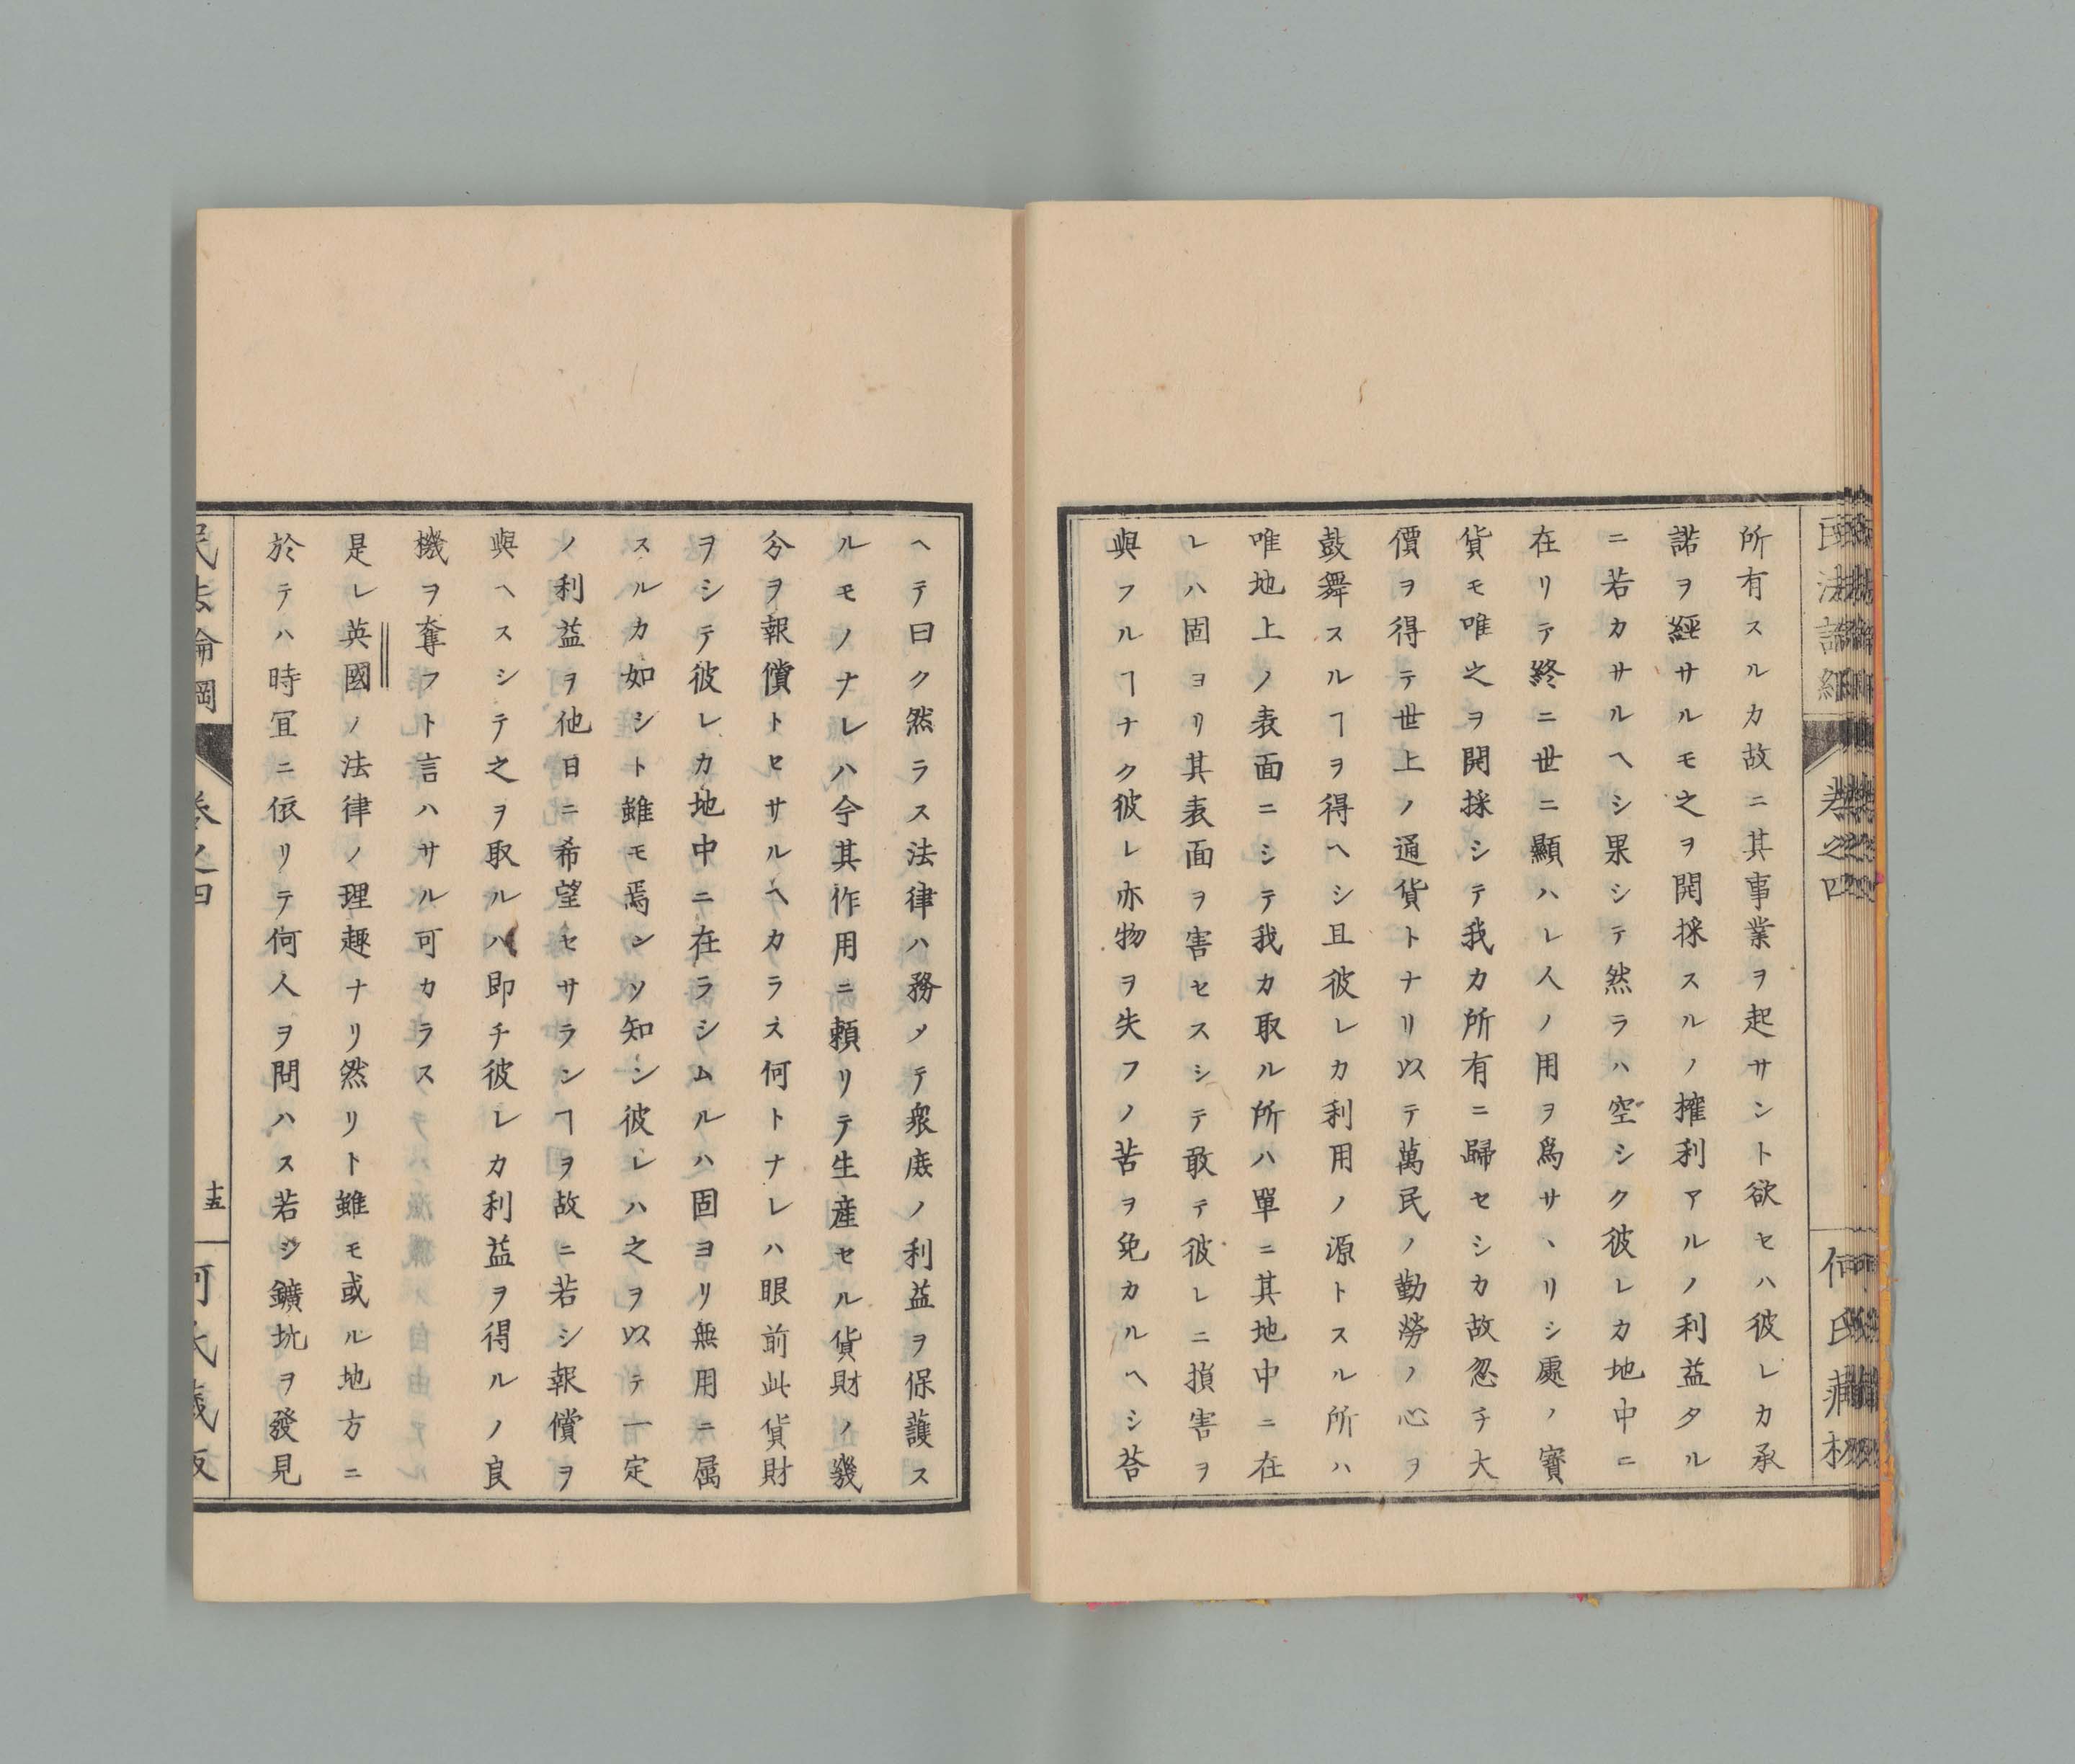 民法論綱
卷之四
何氏藏板
所有スルカ故ニ其事業ヲ起サント欲セハ彼レカ承
諾ヲ經サルモ之ヲ開採スルノ權利アルノ利益タル
ニ若カサルヘシ果シテ然ラハ空シク彼レカ地中ニ
在リテ終ニ世ニ顯ハレ人ノ用ヲ爲サヽリシ處ノ寶
貨モ唯之ヲ開採シテ我カ所有ニ歸セシカ故忽チ大
價ヲ得テ世上ノ通貨トナリ以テ萬民ノ勤勞ノ心ヲ
鼓舞スルヿヲ得ヘシ且彼レカ利用ノ源トスル所ハ
唯地上ノ表面ニシテ我カ取ル所ハ單ニ其地中ニ在
レハ固ヨリ其表面ヲ害セスシテ敢テ彼レニ損害ヲ
與フルヿナク彼レ亦物ヲ失フノ苦ヲ免カルヘシ荅
ヘテ曰ク然ラス法律ハ務メテ衆庶ノ利益ヲ保護ス
ルモノナレハ今其作用ニ頼リテ生産セル貨財ノ幾
分ヲ報償トセサルヘカラス何トナレハ眼前此貨財
ヲシテ彼レカ地中ニ在ラシムルハ固ヨリ無用ニ属
スルカ如シト雖モ焉ンソ知ン彼レハ之ヲ以テ一定
ノ利益ヲ他日ニ希望セサランヿヲ故ニ若シ報償ヲ
與ヘスシテ之ヲ取ルハ即チ彼レカ利益ヲ得ルノ良
機ヲ奪フト言ハサル可カラス
是レ英國ノ法律ノ理趣ナリ然リト雖モ或ル地方ニ
於テハ時冝ニ依リテ何人ヲ問ハス若シ鑛坑ヲ發見
民法論綱
卷之四
十五
何氏藏板